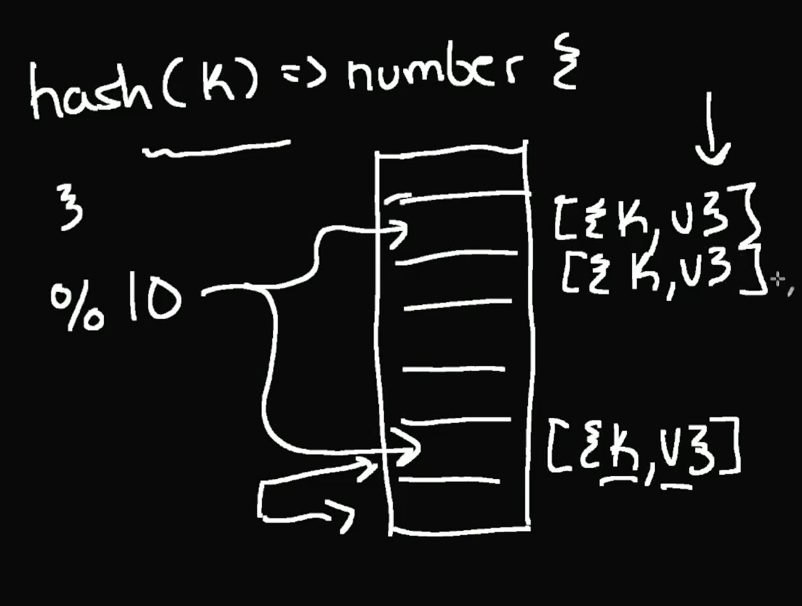 hash(K) => number {
}
% 10
[{K,V}]
[{K,V}]
[{K,V}]